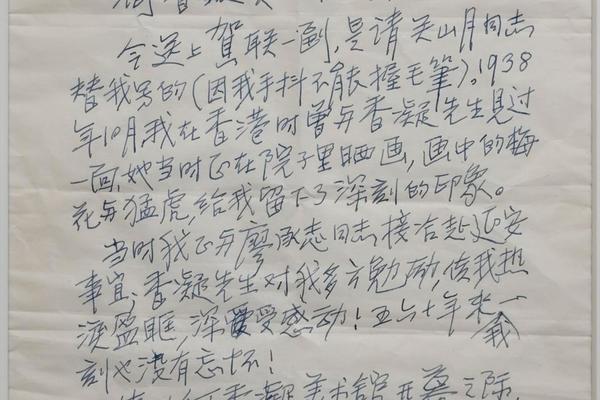 今送上賀联一副,是请关山月同志
替我写的(因我手抖不能握毛筆)。1938
年10月,我在香港时曾与香凝先生見过
一面,她当时正在院子里晒画,画中的梅
花与猛虎,给我留下了深刻的印象。
当时我正与廖承志同志接洽赴延安
事宜,香凝先生对我多方勉励,使我热
淚盈眶,深受感动!五六十年来,我一
刻也没有忘怀!
何香凝美术馆开幕之际,